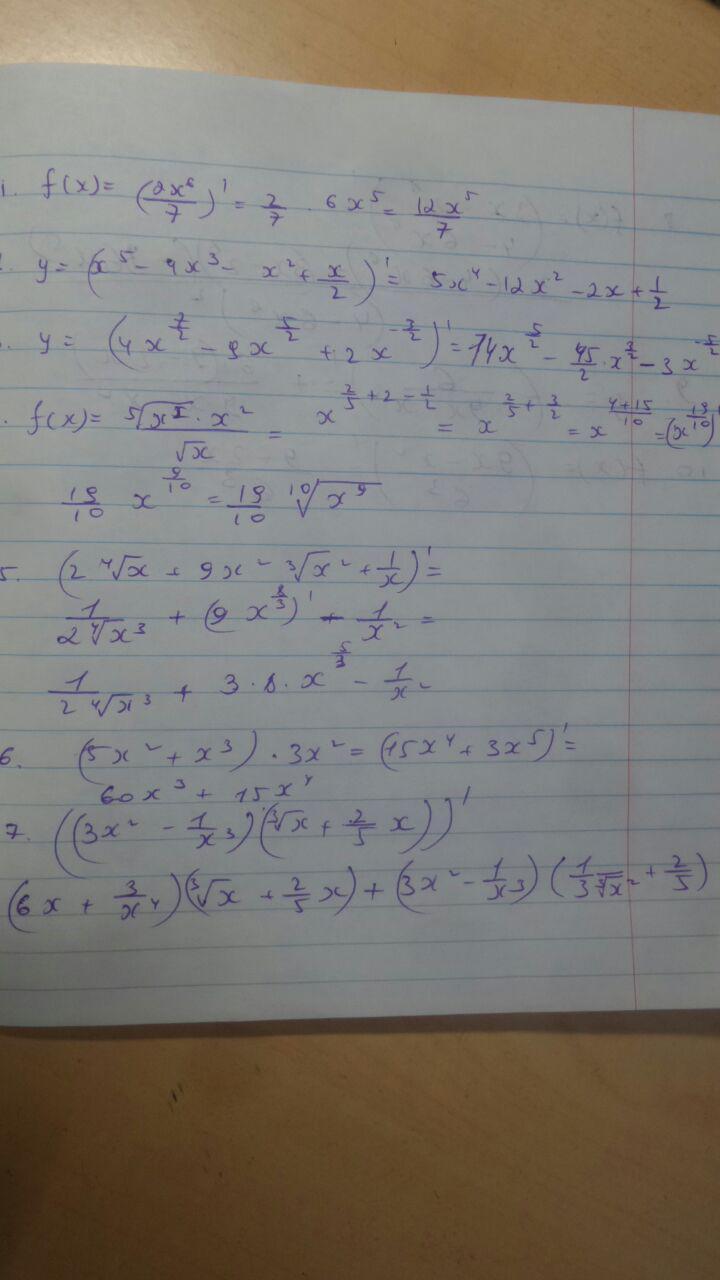 1. f(x) = (2x⁶/7)' = 2/7 · 6x⁵ = 12x⁵/7
. y = (x⁵ - 4x³ - x² + x/2)' = 5x⁴ - 12x² - 2x + 1/2
. y = (4x^(7/2) - 9x^(5/2) + 2x^(-3/2))' = 14x^(5/2) - 45/2 · x^(3/2) - 3x^(-5/2)
. f(x) = ⁵√x² · x² / √x = x^(2/5 + 2 - 1/2) = x^(2/5 + 3/2) = x^((4+15)/10) = (x^(19/10))'
19/10 x^(9/10) = 19/10 ¹⁰√x⁹
5. (2 ⁴√x + 9x² ³√x² + 1/x)' =
1/(2 ⁴√x³) + (9 x^(8/3))' - 1/x² =
1/(2 ⁴√x³) + 3 · 8 · x^(5/3) - 1/x²
6. (5x² + x³) · 3x² = (15x⁴ + 3x⁵)' =
60x³ + 15x⁴
7. ((3x² - 1/x³)(³√x + 2/5 x))'
(6x + 3/x⁴)(³√x + 2/5 x) + (3x² - 1/x³)(1/(3 ³√x²) + 2/5)